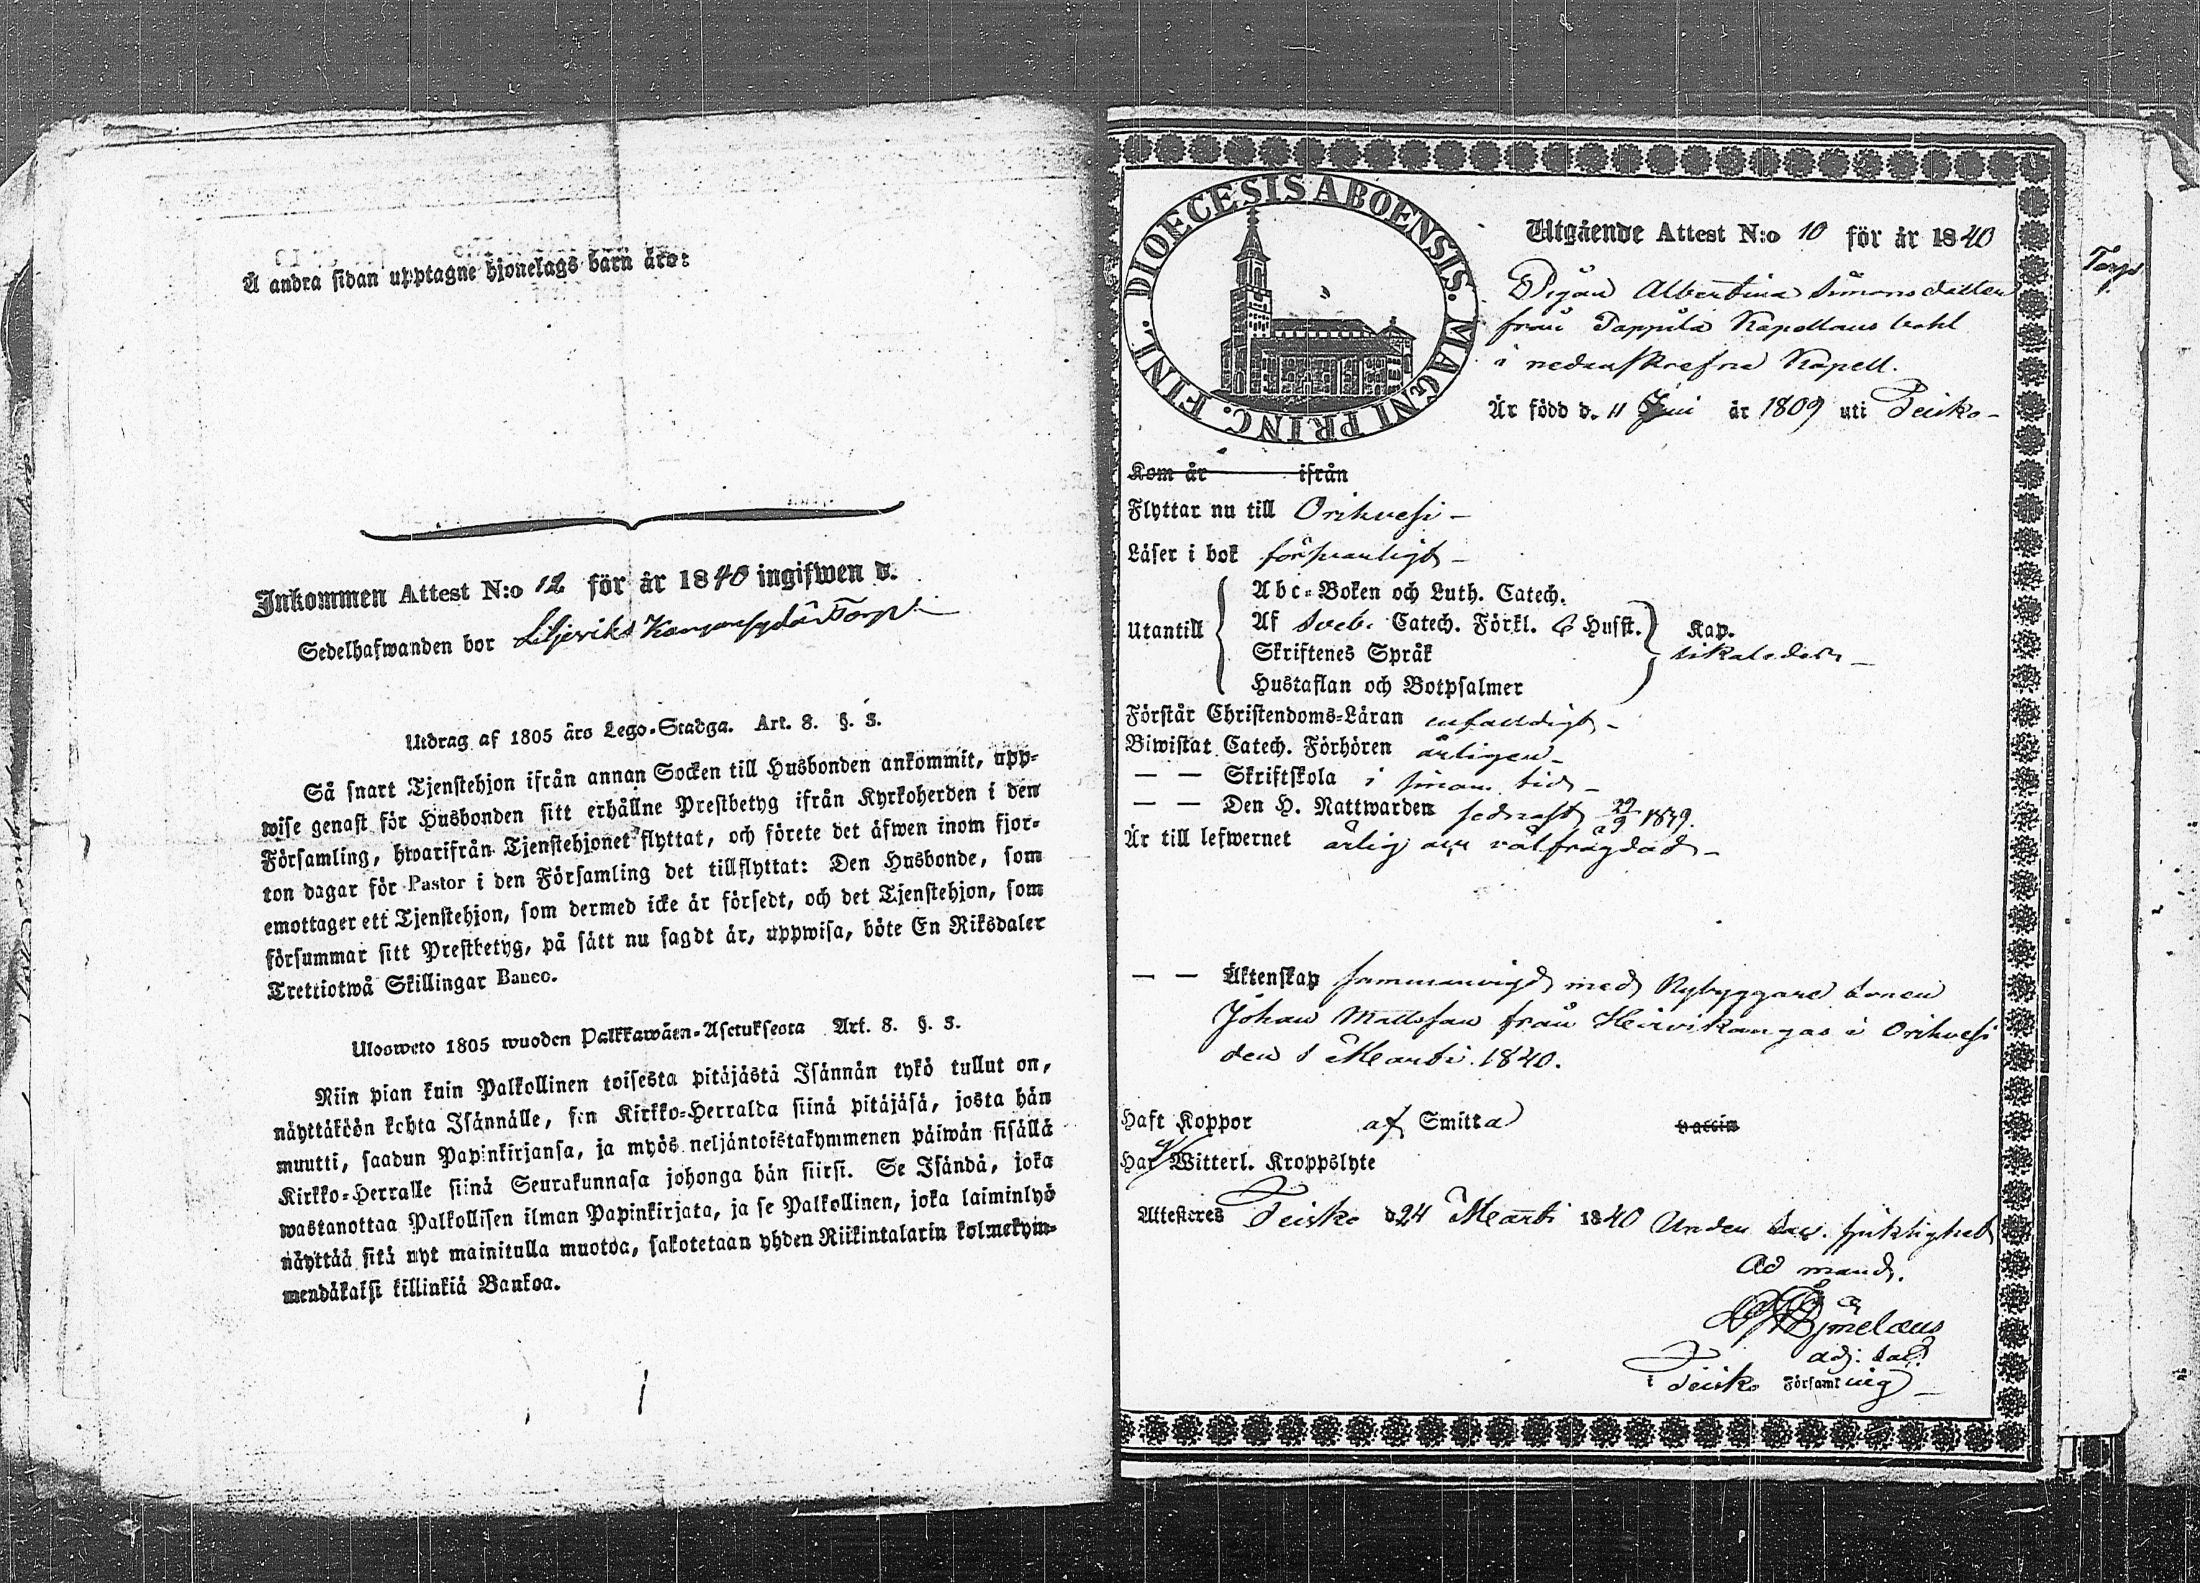 Å andra sidan upptagne hjonelags barn äro:
Inkommen Attest N:o 12 för år 1840 ingifwen d.
Sedelhafwanden bor Liljeriks Torp
Utdrag af 1805 års Lego-Stadga. Art. 8. §. 3.
Så snart Tjenstehjon ifrån annan Socken till Husbonden ankommit, upp-
wise genast för Husbonden sitt erhållne Prestbetyg ifrån Kyrkoherden i den
Församling, hwarifrån Tjenstehjonet flyttat, och förete det äfwen inom fjor-
ton dagar för Pastor i den Församling det tillflyttat: Den Husbonde, som
emottager ett Tjenstehjon, som dermed icke är försedt, och det Tjenstehjon, som
försummar sitt Prestbetyg, på sätt nu sagdt är, uppwisa, böte En Riksdaler
Trettiotwå Skillingar Banco.
Ulosweto 1805 wuoden Palkkawäen-Asetuksesta Art. 8. §. 3.
Niin pian kuin Palkollinen toisesta pitäjästä Isännän tykö tullut on,
näyttäköön kohta Isännälle, sen Kirkko-Herralda siinä pitäjäsä, josta hän
muutti, saadun Papinkirjansa, ja myös neljäntoistakymmenen päiwän sisällä
Kirkko-Herralle siinä Seurakunnasa johonga hän siirsi. Se Isändä, joka
wastanottaa Palkollisen ilman Papinkirjata, ja se Palkollinen, joka laiminlyö
näyttää sitä nyt mainitulla muotoa, sakotetaan yhden Riikintalarin kolmekym-
mendäkaksi killinkiä Bankoa.
DIOECESIS ABOENSIS. MAGNI PRINC. FINL.
Utgående Attest N:o 10 för år 1840
Pigan Albertina Simonsdotter
från Pappila Kapellans bohl
i nedanskrefne Kapell.
Är född d. 11 Juni år 1809 uti Teisko-
Kom år ifrån
Flyttar nu till Orihvesi-
Läser i bok försvarligt-
Utantill
Abc-Boken och Luth. Catech.
Af Sveb. Catech. Förkl. 6 Husst. Kap.
Skriftenes Språk
Hustaflan och Botpsalmer
Förstår Christendoms-Läran enfaldigt-
Biwistat Catech. Förhören årligen-
— — Skriftskola i sinom tid-
— — Den H. Nattwarden sednast 29/9 1839.
Är till lefwernet ärlig och välfrägdad-
— — Äktenskap sammanvigd med Nybyggare Sonen
Johan Mattsson från Hirvikangas i Orihvesi
den 1 Martii 1840.
Haft Koppor af Smitta vaccin
Har Witterl. Kroppslyte
Attesteres Teisko d. 24 Martii 1840 Under
Ad mand.
adj. Sac.
i Teisko Församling-
Torp